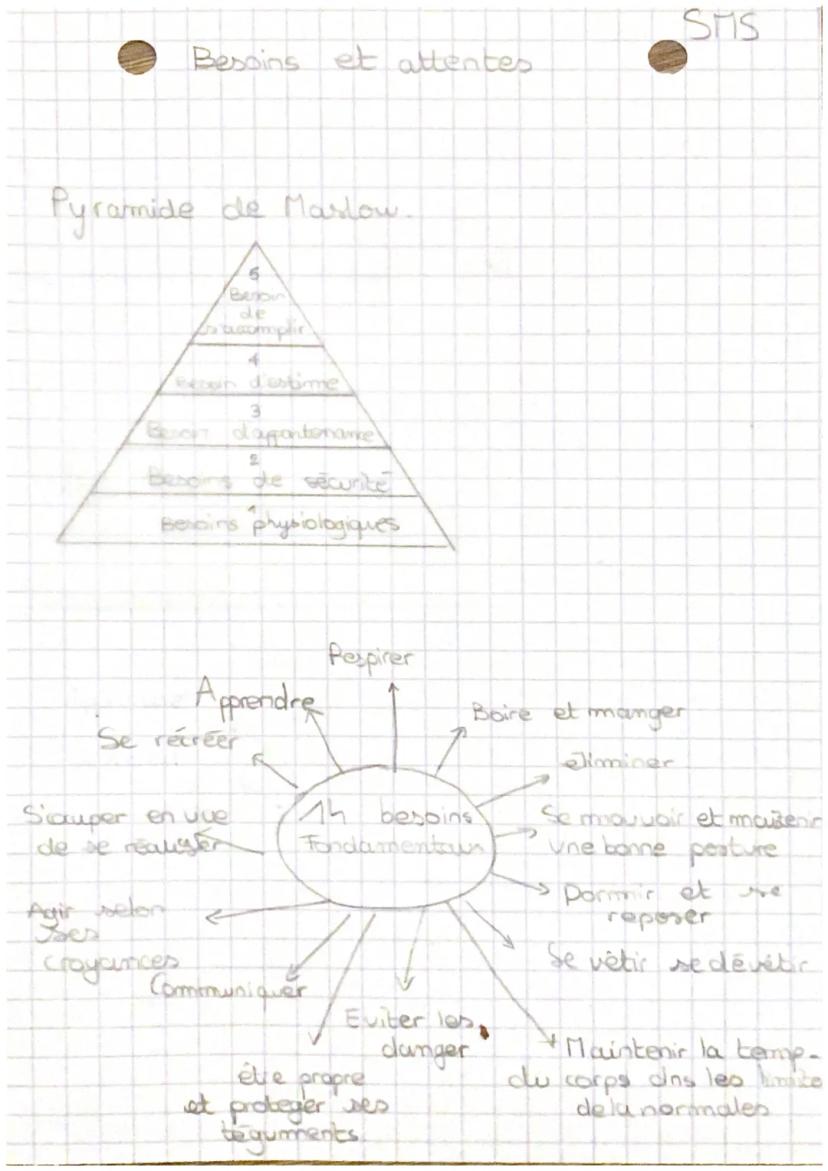 SMS
Besoins et attentes
Pyramide de Maslow.
5
Besoin
de
s'accomplir
4
Besoin d'estime
3
Besoin d'appartenance
2
Besoins de sécurité
1
Besoins physiologiques
Respirer
Apprendre
Boire et manger
Se récréer
éliminer
14 besoins
Fondamentaux
S'occuper en vue
de se réaliser
Se mouvoir et maintenir
une bonne posture
Dormir et se
reposer
Agir selon
ses
croyances
Se vêtir se dévêtir
Communiquer
Eviter les
danger
Maintenir la temp-
du corps dns les limite
de la normales
être propre
et proteger ses
téguments